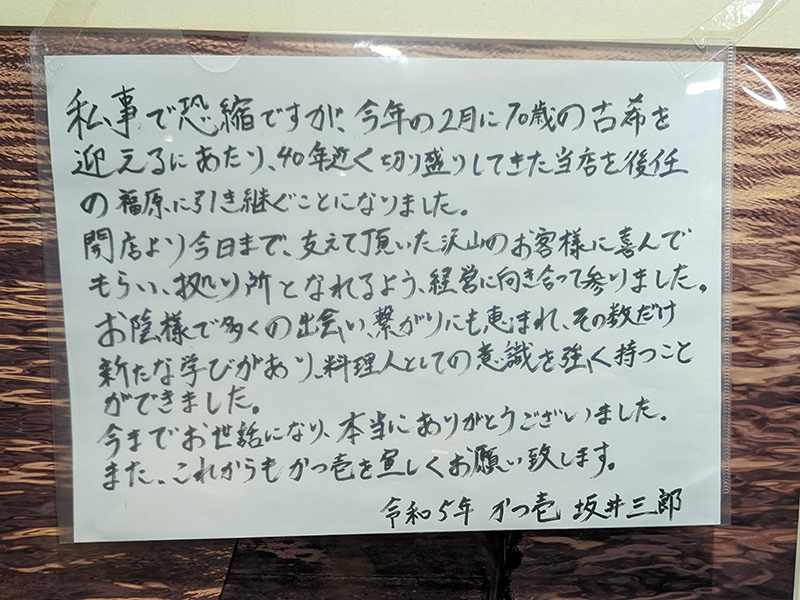 私事で恐縮ですが、今年の2月に70歳の古希を
迎えるにあたり、40年近く切り盛りしてきた当店を後任
の福原に引き継ぐことになりました。
開店より今日まで、支えて頂いた沢山のお客様に喜んで
もらい、拠り所となれるよう、経営に向き合って参りました。
お陰様で多くの出会い、繋がりにも恵まれ、その数だけ
新たな学びがあり、料理人としての意識を強く持つこと
ができました。
今までお世話になり、本当にありがとうございました。
また、これからもかつ壱を宜しくお願い致します。
令和5年 かつ壱 坂井三郎